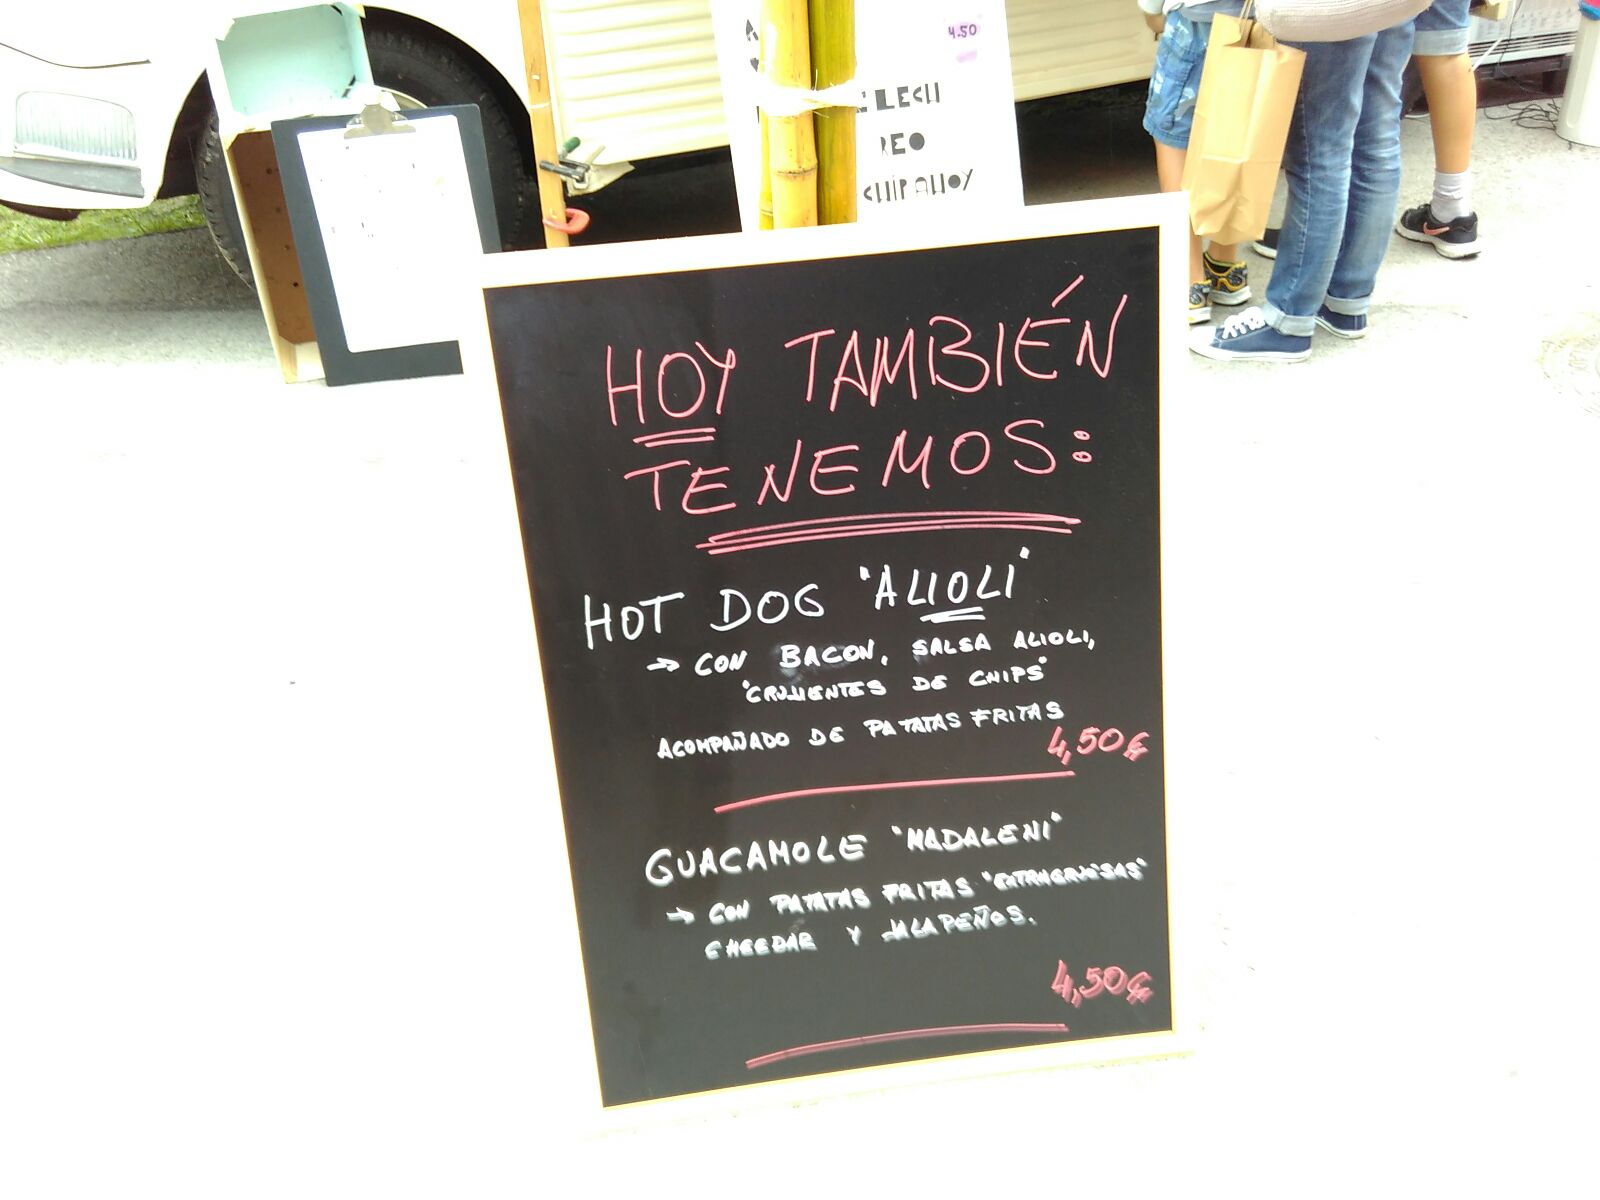 4.50
LECH
REO
CHIP AHOY
HOY TAMBIÉN
TENEMOS:
HOT DOG "ALIOLI"
→ CON BACON, SALSA ALIOLI,
"CRUJIENTES DE CHIPS"
ACOMPAÑADO DE PATATAS FRITAS
4,50€
GUACAMOLE "MADALENI"
→ CON PATATAS FRITAS
CHEEDAR Y JALAPEÑOS.
4,50€